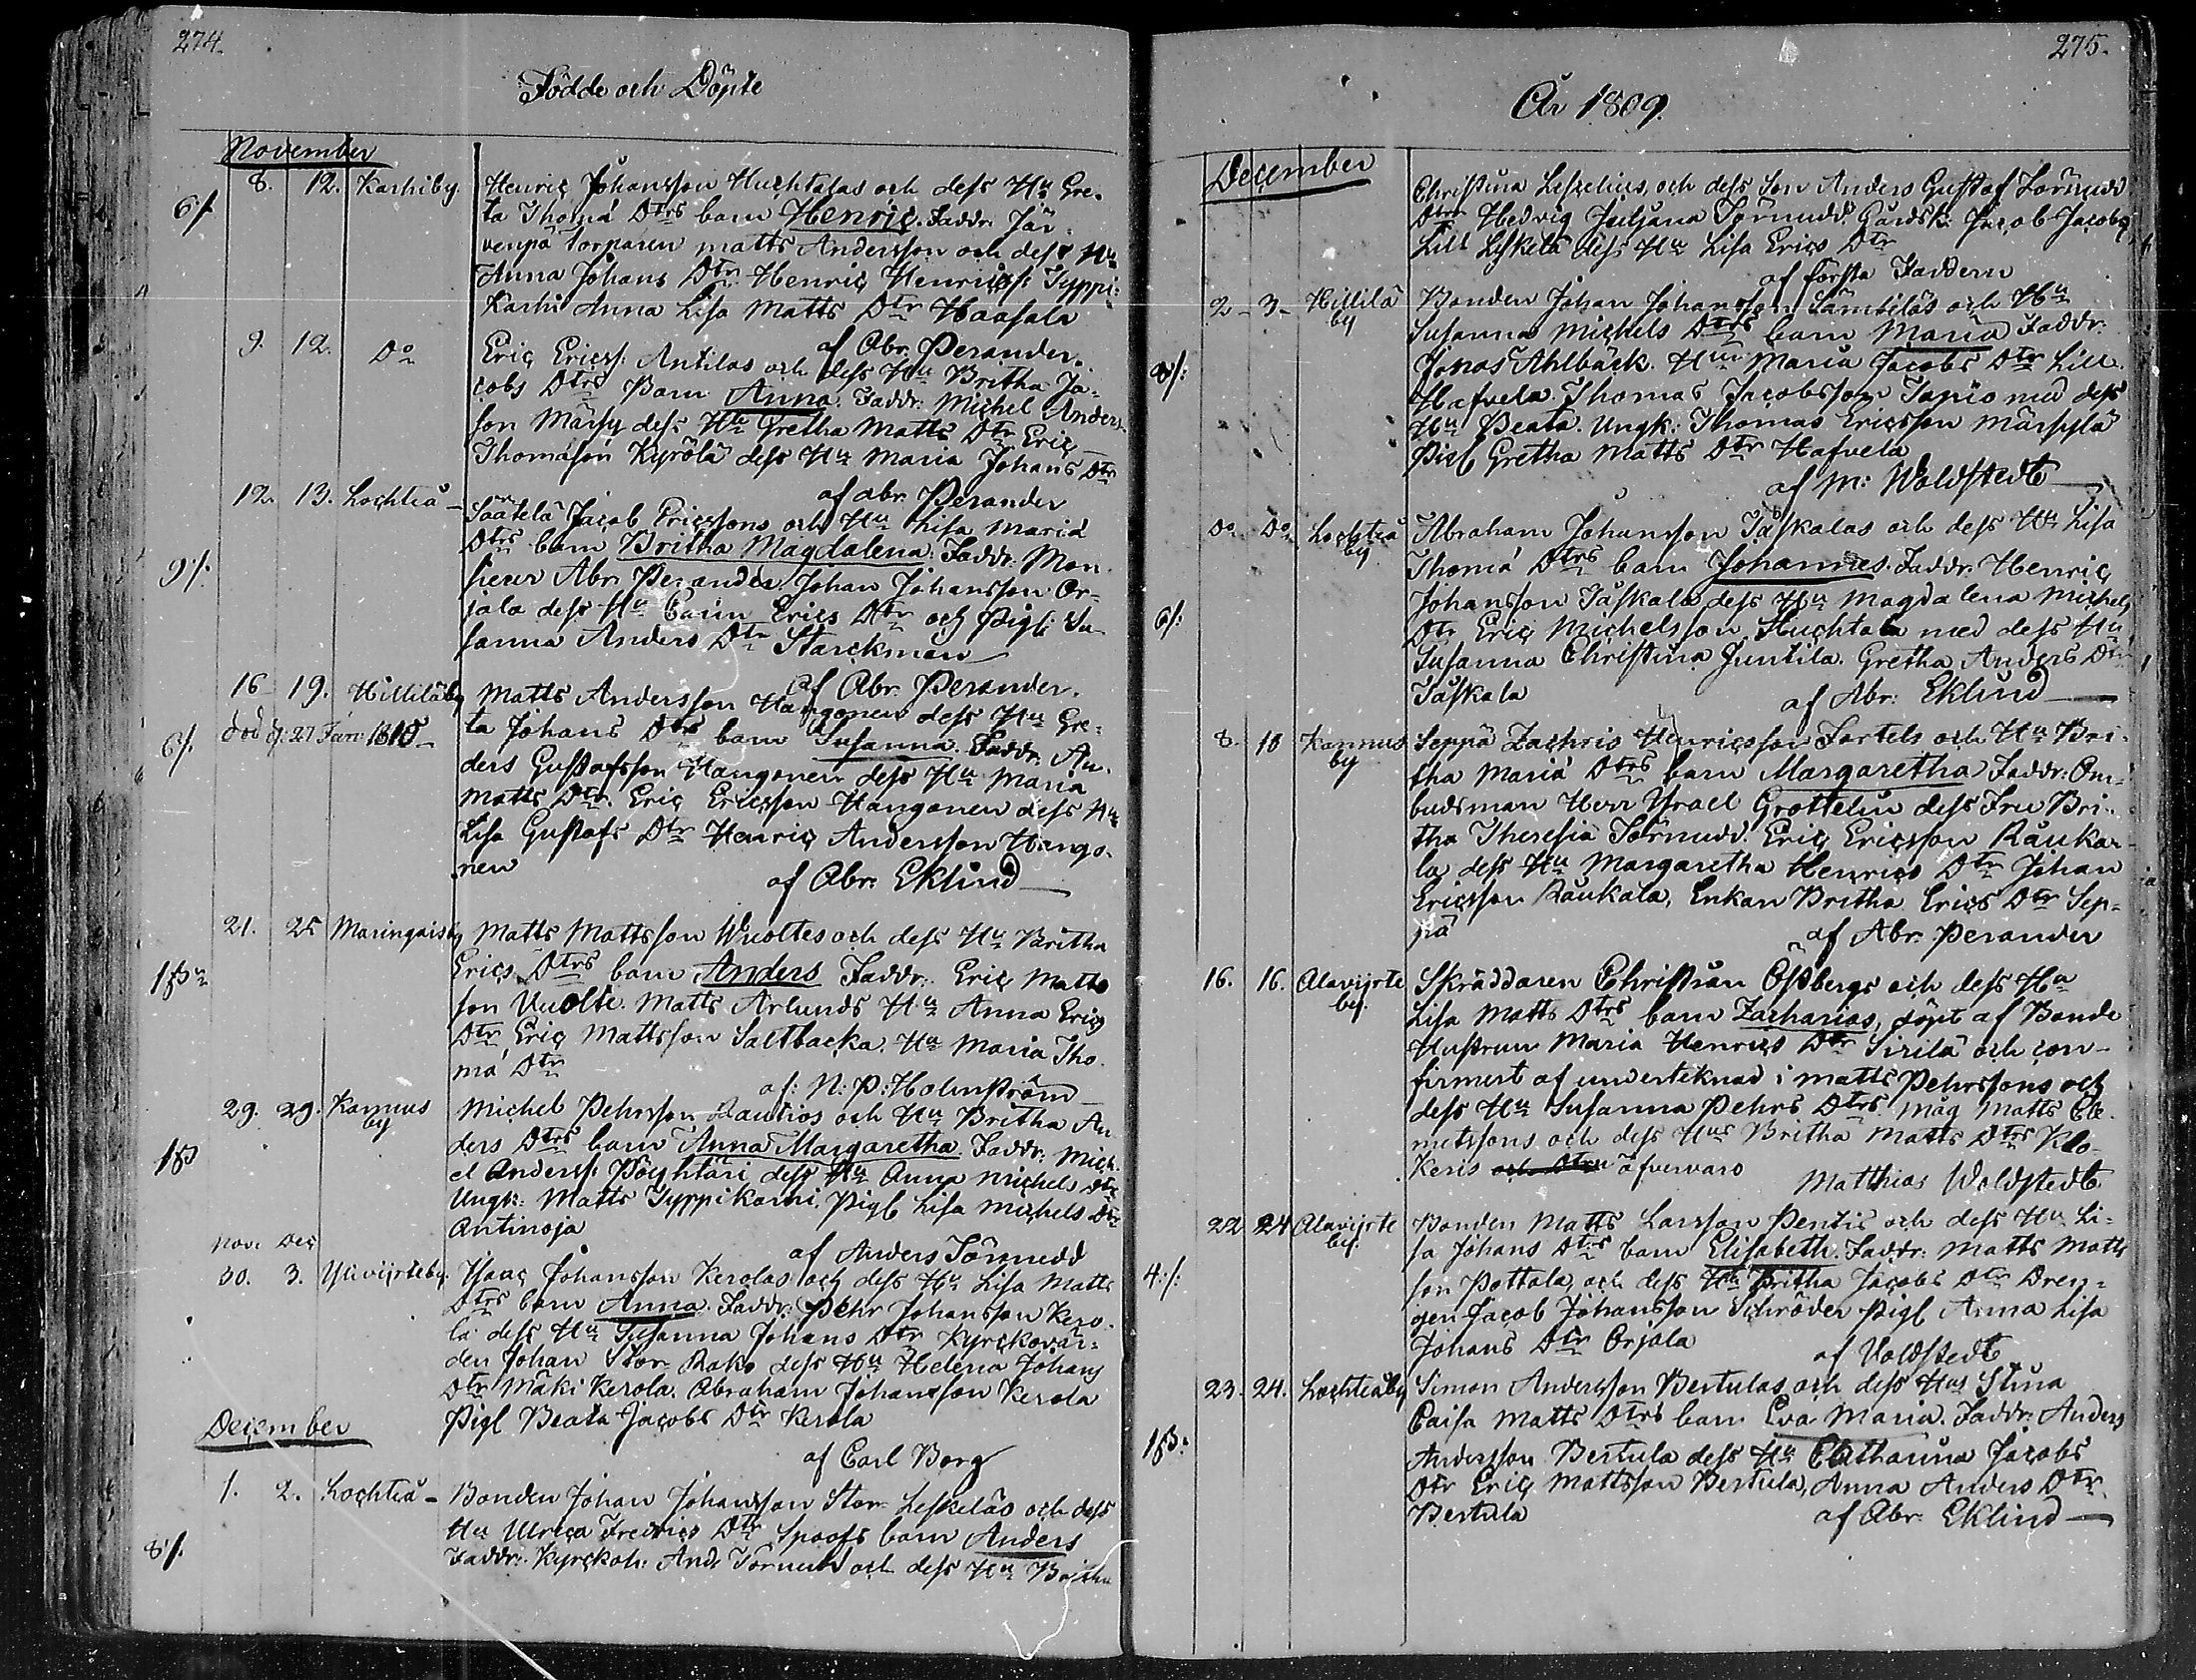 274.
Födde och Döpte
November
6/. 8. 12. Karhiby. Henric Johansson Huchtalas och dess Hu Gre-
ta Thomæ Dtrs barn Henric. Faddr. Jär-
venpä Torparen Matts Andersson och dess Hu
Anna Johans Dtr Henric Henricss: Typpi:
Karhi Anna Lisa Matts Dtr Haasala
af Abr. Perander.
9. 12. Do Eric Ericss. Antilas och dess Hu Britha Ja-
cobs Dtrs Barn Anna. Faddr. Michel Anders-
son Märsy dess Hu Gretha Matts Dtr Eric
Thomasson Kyrölä dess Hu Maria Johans Dtr
af abr. Perander
9/. 12. 13. Lochteå - Säätelä Jacob Ericssons och Hu Lisa Mariæ
Dtrs barn Britha Magdalena. Faddr. Mon-
sieur Abr. Perander. Johan Johansson Or-
jala dess Hu Carin Erics Dtr och Pigl: Su-
sanna Anders Dtr Starckman
af Abr. Perander.
6/. 16 19. Hillilaby Matts Andersson Hangonen dess Hu Gre-
död d: 27 Jan: 1810 - ta Johans Dtrs barn Susanna. Faddr. An-
ders Gustafsson Hangonen dess Hu Maria
Matts Dtr. Eric Ericsson Hangonen dess Hu
Lisa Gustafs Dtr Henric Andersson Hango-
nen
af Abr. Eklund
21. 25 Maringaisby Matts Mattsson Wuoltes och dess Hu Britha
Erics Dtrs barn Anders Faddr. Eric Matts
son Vuolte. Matts Arlunds Hu Anna Erics
Dtr Eric Mattsson Saltbacka. Hu Maria Tho-
mæ Dtr
af: N: P: Holmström
29. 29. Kannus by Michel Pehrsson Rautios och Hu Britha An-
ders Dtrs barn Anna Margaretha. Faddr. Mich-
el Anderss: Pöyhtäri dess Hu Anna Michels Dtr
Ungk: Matts Typpikarni. Pigl Lisa Michels Dtr
Antinoja
af Anders Törnudd
Nov: Dec
30. 3. Yliviirteby. Ysaac Johansson Kerolas och dess Hu Lisa Matts
Dtrs barn Anna. Faddr. Pehr Johansson Kero-
la dess Hu Susanna Johans Dtr Kyrckovär-
den Johan Stor Rako dess Hu Helena Johans
Dtr Mäki Kerola. Abraham Johansson Kerola
Pigl Beata Jacobs Dtr Kerola
af Carl Borg
December
8/. 1. 2. Lochteå - Bonden Johan Johansson Stor Leskeläs och dess
Hu Ulrica Fredrics Dtr Spoofs barn Anders
Faddr. Kyrckoh: And: Törnudd och dess Hu Britha
275.
År 1809.
December
Christina Leszelius, och dess Son Anders Gustaf Törnudd
Dtr Hedvig Juljana Törnudd. Gårdsk: Jacob Jacobs:
Lill Leskelä dess Hu Lisa Erics Dtr
af första Faddern
8/: 2- 3- Hillilä by Bonden Johan Johansson Sämtiläs och Hu
Susanna Michels Dtrs barn Maria Faddr.
Jonas Ahlbäck. Hu Maria Jacobs Dtr Lill
Hafvela. Thomas Jacobsson Tapio med dess
Hu Beata. Ungk: Thomas Ericsson Märsylä
Pigl Gretha Matts Dtr Hafvela
af M: Woldstedt
6/: Do Do Lochteå by Abraham Johansson Jäskalas och dess Hu Lisa
Thomæ Dtrs barn Johannes. Faddr. Henric
Johansson Jäskala dess Hu Magdalena Michels
Dtr Eric Michelsson Huchtala med dess Hu
Susanna Christina Juntila. Gretha Anders Dtr
Jäskala
af Abr: Eklund
8. 10 Kannus by Seppä Zachris Henricsson Fortels och Hu Bri-
tha Mariæ Dtrs barn Margaretha Faddr: Om-
budsman Herr Ysrael Grottelin dess Fru Bri-
tha Theresia Törnudd. Eric Ericsson Rauka-
la dess Hu Margaretha Henrics Dtr Johan
Ericsson Raukala, Enkan Britha Erics Dtr Sep-
pä
af Abr. Perander
16. 16. Alaviirte by. Skräddaren Christian Östbergs och dess Hu
Lisa Matts Dtrs barn Zacharias, döpt af Bonde
Hustrun Maria Henrics Dtr Sirilä och con-
firmert af underteknad i Matts Pehrssons och
dess Hu Susanna Pehrs Dtrs. Måg Matts Cle-
metssons och dess Hus Britha Matts Dtrs Klo-
keris öfvervaro
Matthias Woldstedt
4:/: 22 24 Alaviirte by. Bonden Matts Larsson Pentis och dess Hu Li-
sa Johans Dtrs barn Elisabeth. Faddr: Matts Matts
son Pottala och dess Hu Britha Jacobs Dtr Dren-
gen Jacob Johansson Schröder Pigl Anna Lisa
Johans Dtr Orjala
af Voldstedt
23. 24. Lochteåby Simon Andersson Bertulas och dess Hus Stina
Caisa Matts Dtrs barn Eva Maria. Faddr. Anders
Andersson Bertula dess Hu Catharina Jacobs
Dtr Eric Mattsson Bertula, Anna Anders Dtr
Bertula
af Abr. Eklund